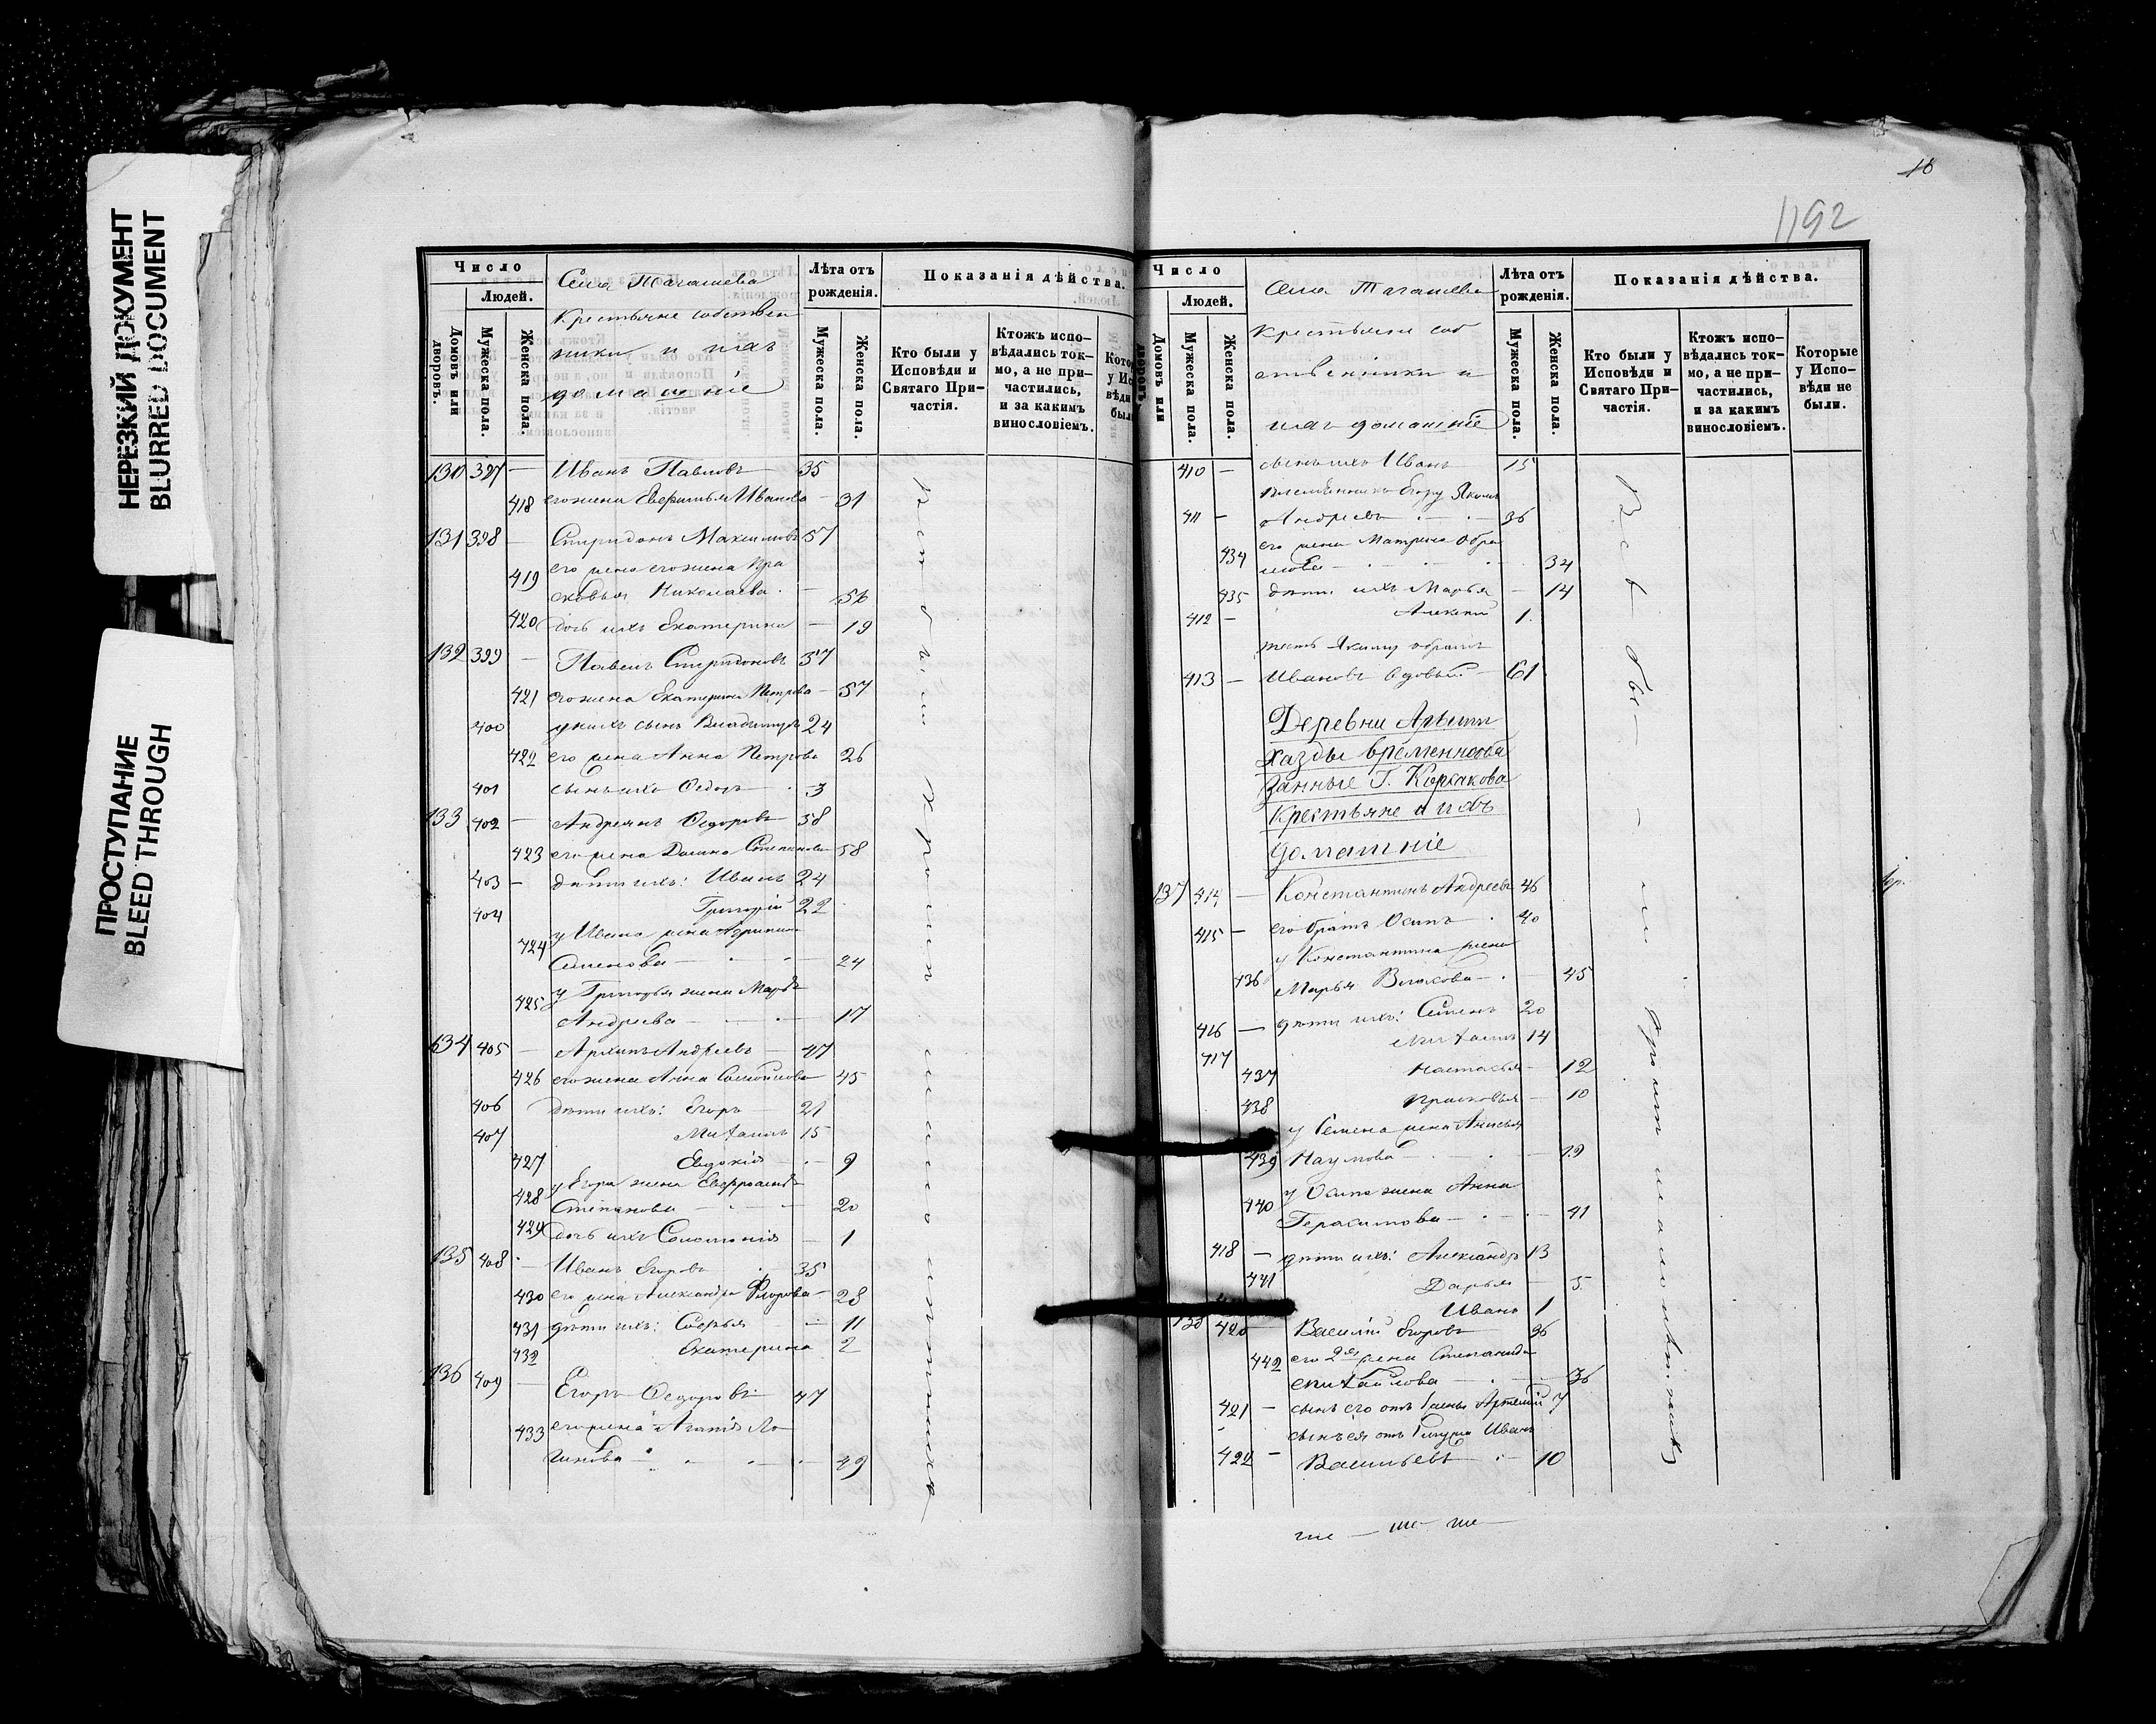 НЕРЕЗКИЙ ДОКУМЕНТ
BLURRED DOCUMENT
ПРОСТУПАНИЕ
BLEED THROUGH
Число
Людей.
Домовъ или дворовъ.
Мужеска пола.
Женска пола.
Села Тагашева
Крестьяне собствен
ники и ихъ
домашніе
Лѣта отъ рожденія.
Мужеска пола.
Женска пола.
Показанія дѣйства.
Кто были у Исповѣди и Святаго Причастія.
Ктожъ исповѣдались токмо, а не причастились, и за какимъ винословіемъ.
130 397 — Иванъ Павловъ 35
418 его жена Евфимья Иванова — 31
131 398 — Спиридонъ Максимовъ 57
419 его жена его жена Пра
сковья Николаева — 56
420 дочь ихъ Екатерина — 19
132 399 — Павелъ Спиридоновъ 37
421 его жена Екатерина Петрова — 57
400 у нихъ сынъ Владимиръ 24
422 его жена Анна Петрова 26
401 сынъ ихъ Ѳедоръ 3
133 402 — Андреянъ Ѳедоровъ 58
423 его жена Степанова 58
403 — дѣти ихъ: Иванъ 24
404 Григорій 22
424 у Ивана жена
Семенова — 24
425 у Григорья жена Марья
Андреева — 17
134 405 — Архипъ Андреевъ — 47
426 его жена Анна Самойлова 45
406 дѣти ихъ: Егоръ 21
407 Михаилъ 15
427 Евдокія 9
428 у Егора жена
Степанова — 20
429 дочь ихъ — 1
135 408 — Иванъ Егоровъ 35
430 его жена Александра Флорова — 28
431 дѣти ихъ: Софья — 11
432 Екатерина 2
136 409 — Егоръ Ѳедоровъ 47
433 его жена Агапія Ло
гинова 49
10
1192
Число
Людей.
Домовъ или дворовъ.
Мужеска пола.
Женска пола.
Села Тагашева
Крестьяне соб
ственники и
ихъ домашніе
Лѣта отъ рожденія.
Мужеска пола.
Женска пола.
Показанія дѣйства.
Кто были у Исповѣди и Святаго Причастія.
Ктожъ исповѣдались токмо, а не причастились, и за какимъ винословіемъ.
Которые у Исповѣди не были.
410 — сынъ ихъ Иванъ 15
Егору Якимъ
411 — Андреевъ 36
434 его жена Матрена Обра
мова — 34
435 дѣти ихъ Марья — 14
412 — Алексей 1
тесть Якиму
413 — Ивановъ вдовый — 61
Деревни
Хазды временнообя
занные Г. Корсакова
Крестьяне и ихъ
домашніе
137 414 — Константинъ Андреевъ 46
415 — его братъ Осипъ 40
у Константина жена
436 Марья Власова — 45
416 — дѣти ихъ: Семенъ 20
417 Михаилъ 14
437 Настасья — 12
438 Прасковья — 10
у Семена жена Анисья
439 Наумова
у Осипа жена Анна
440 Герасимова — 41
418 — дѣти ихъ: Александръ 13
441 Дарья — 5
Иванъ 1
138 420 Василій Егоровъ 36
442 его 2я жена Степанида
Михайлова — 36
421 — сынъ его отъ 1 жены Артемій 7
сынъ ея отъ 1 мужа Иванъ
422 — Васильевъ 10